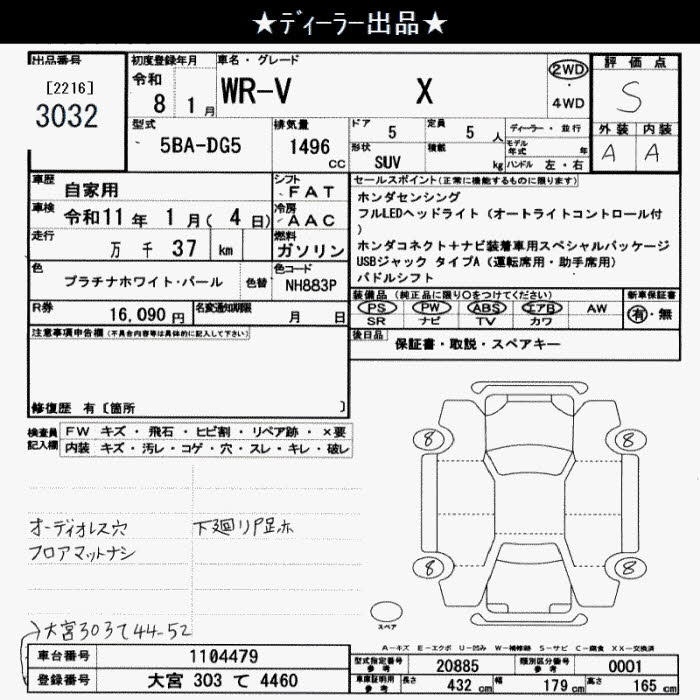 ★ディーラー出品★
出品番号
[2216]
3032
初度登録年月
令和
8 1 月
車名・グレード
WR-V X
2WD
・
4WD
評価点
S
外装 内装
A A
型式
5BA-DG5
排気量
1496
CC
ドア
5
定員
5 人
形状
SUV
積載
kg
ディーラー・並行
モデル年式 年
ハンドル 左・右
車歴
自家用
シフト
FAT
車検
令和11年 1月( 4日)
冷房
AAC
走行
万 千 37 km
燃料
ガソリン
色
プラチナホワイト・パール
色替
色コード
NH883P
R券
16,090 円
名変通知期限
月 日
セールスポイント(正常に機能するものに限ります)
ホンダセンシング
フルLEDヘッドライト(オートライトコントロール付
)
ホンダコネクト+ナビ装着車用スペシャルパッケージ
USBジャック タイプA(運転席用・助手席用)
パドルシフト
装備品(純正品に限り○をつけてください)
PS PW ABS エアB AW
SR ナビ TV カワ
新車保証書
有・無
後日品
保証書・取説・スペアキー
注意事項申告欄(不具合内容等は具体的に記入して下さい)
修復歴 有〔箇所 〕
検査員記入欄
FW キズ・飛石・ヒビ割・リペア跡・×要
内装 キズ・汚レ・コゲ・穴・スレ・キレ・破レ
オーディオレス穴
フロアマットナシ
8 8
8 8
スペア
大宮303て44-52
A-キズ E-エクボ U-凹み W-補修跡 S-サビ C-腐食 XX-交換済
車台番号
1104479
登録番号
大宮 303 て 4460
型式指定番号
参考
20885
類別区分番号
参考
0001
車庫証明用
参考
長さ 432 cm
幅 179 cm
高さ 165 cm